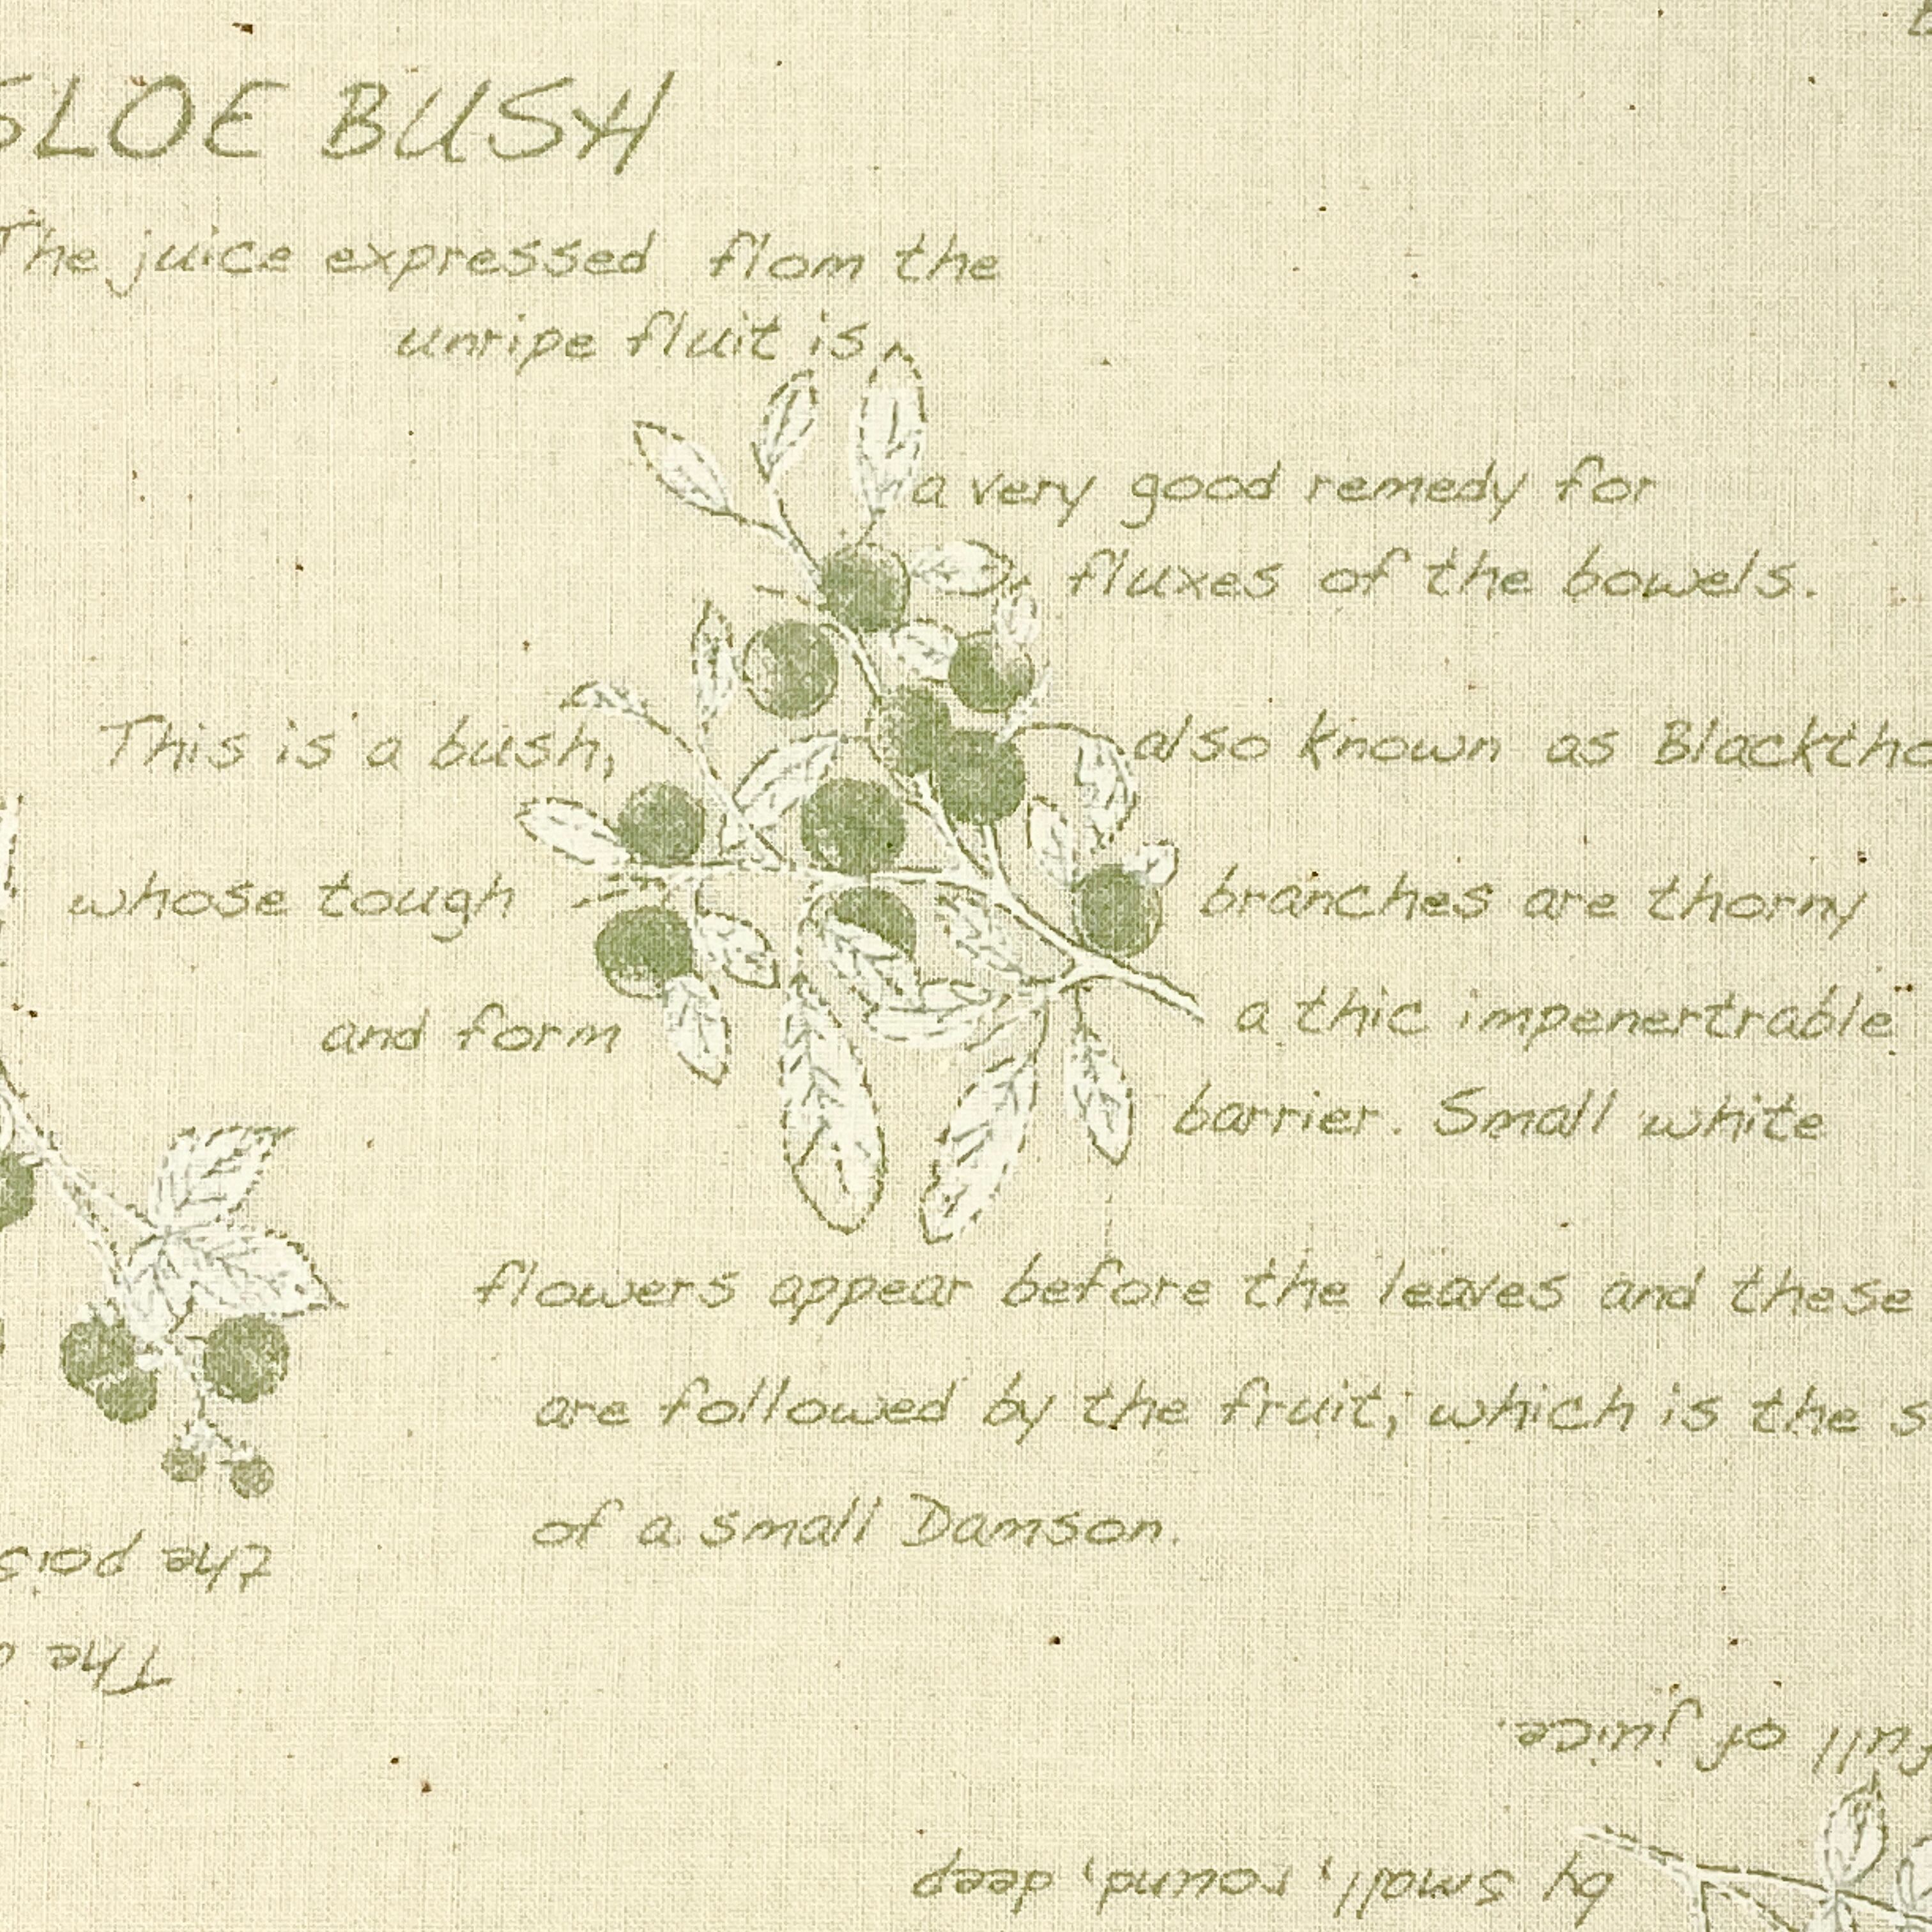 SLOE BUSH
The juice expressed flom the
unripe fluit is
a very good remedy for
fluxes of the bowels.
This is a bush, also known as Blacktho
whose tough branches are thorny
and form a thic impenertrable
barrier. Small white
flowers appear before the leaves and these
are followed by the fruit, which is the s
of a small Damson.
the pois
The
full of juice.
by small, round, deep